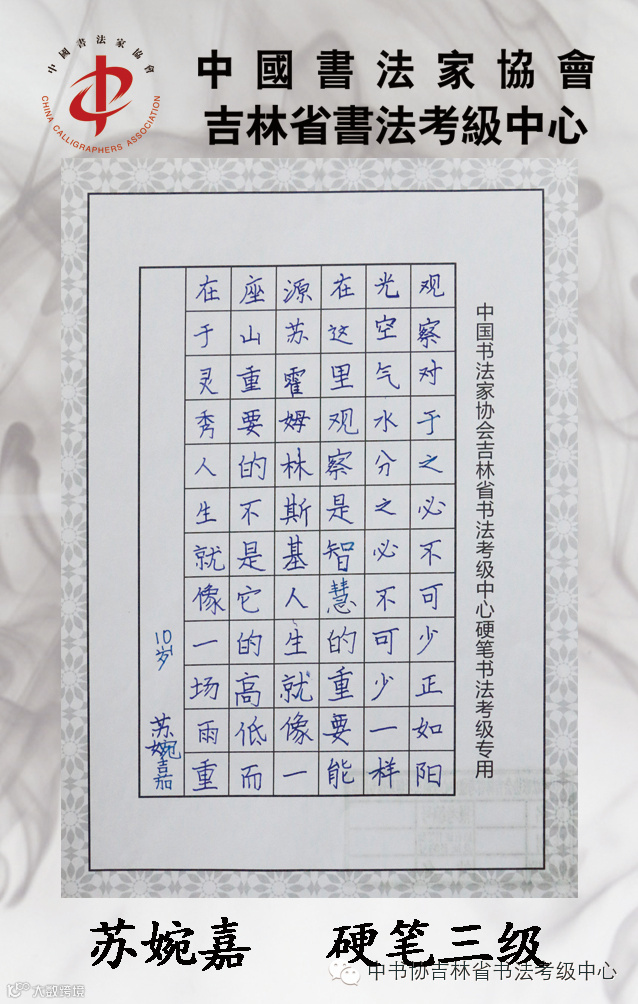 中國書法家協會
CHINA CALLIGRAPHERS ASSOCIATION
中國書法家協會
吉林省書法考級中心
中国书法家协会吉林省书法考级中心硬笔书法考级专用
观察对于之必不可少正如阳
光空气水分之必不可少一样
在这里观察是智慧的重要能
源苏霍姆林斯基人生就像一
座山重要的不是它的高低而
在于灵秀人生就像一场雨重
10岁 苏婉嘉
苏婉嘉 硬笔三级
中书协吉林省书法考级中心
大数跨境